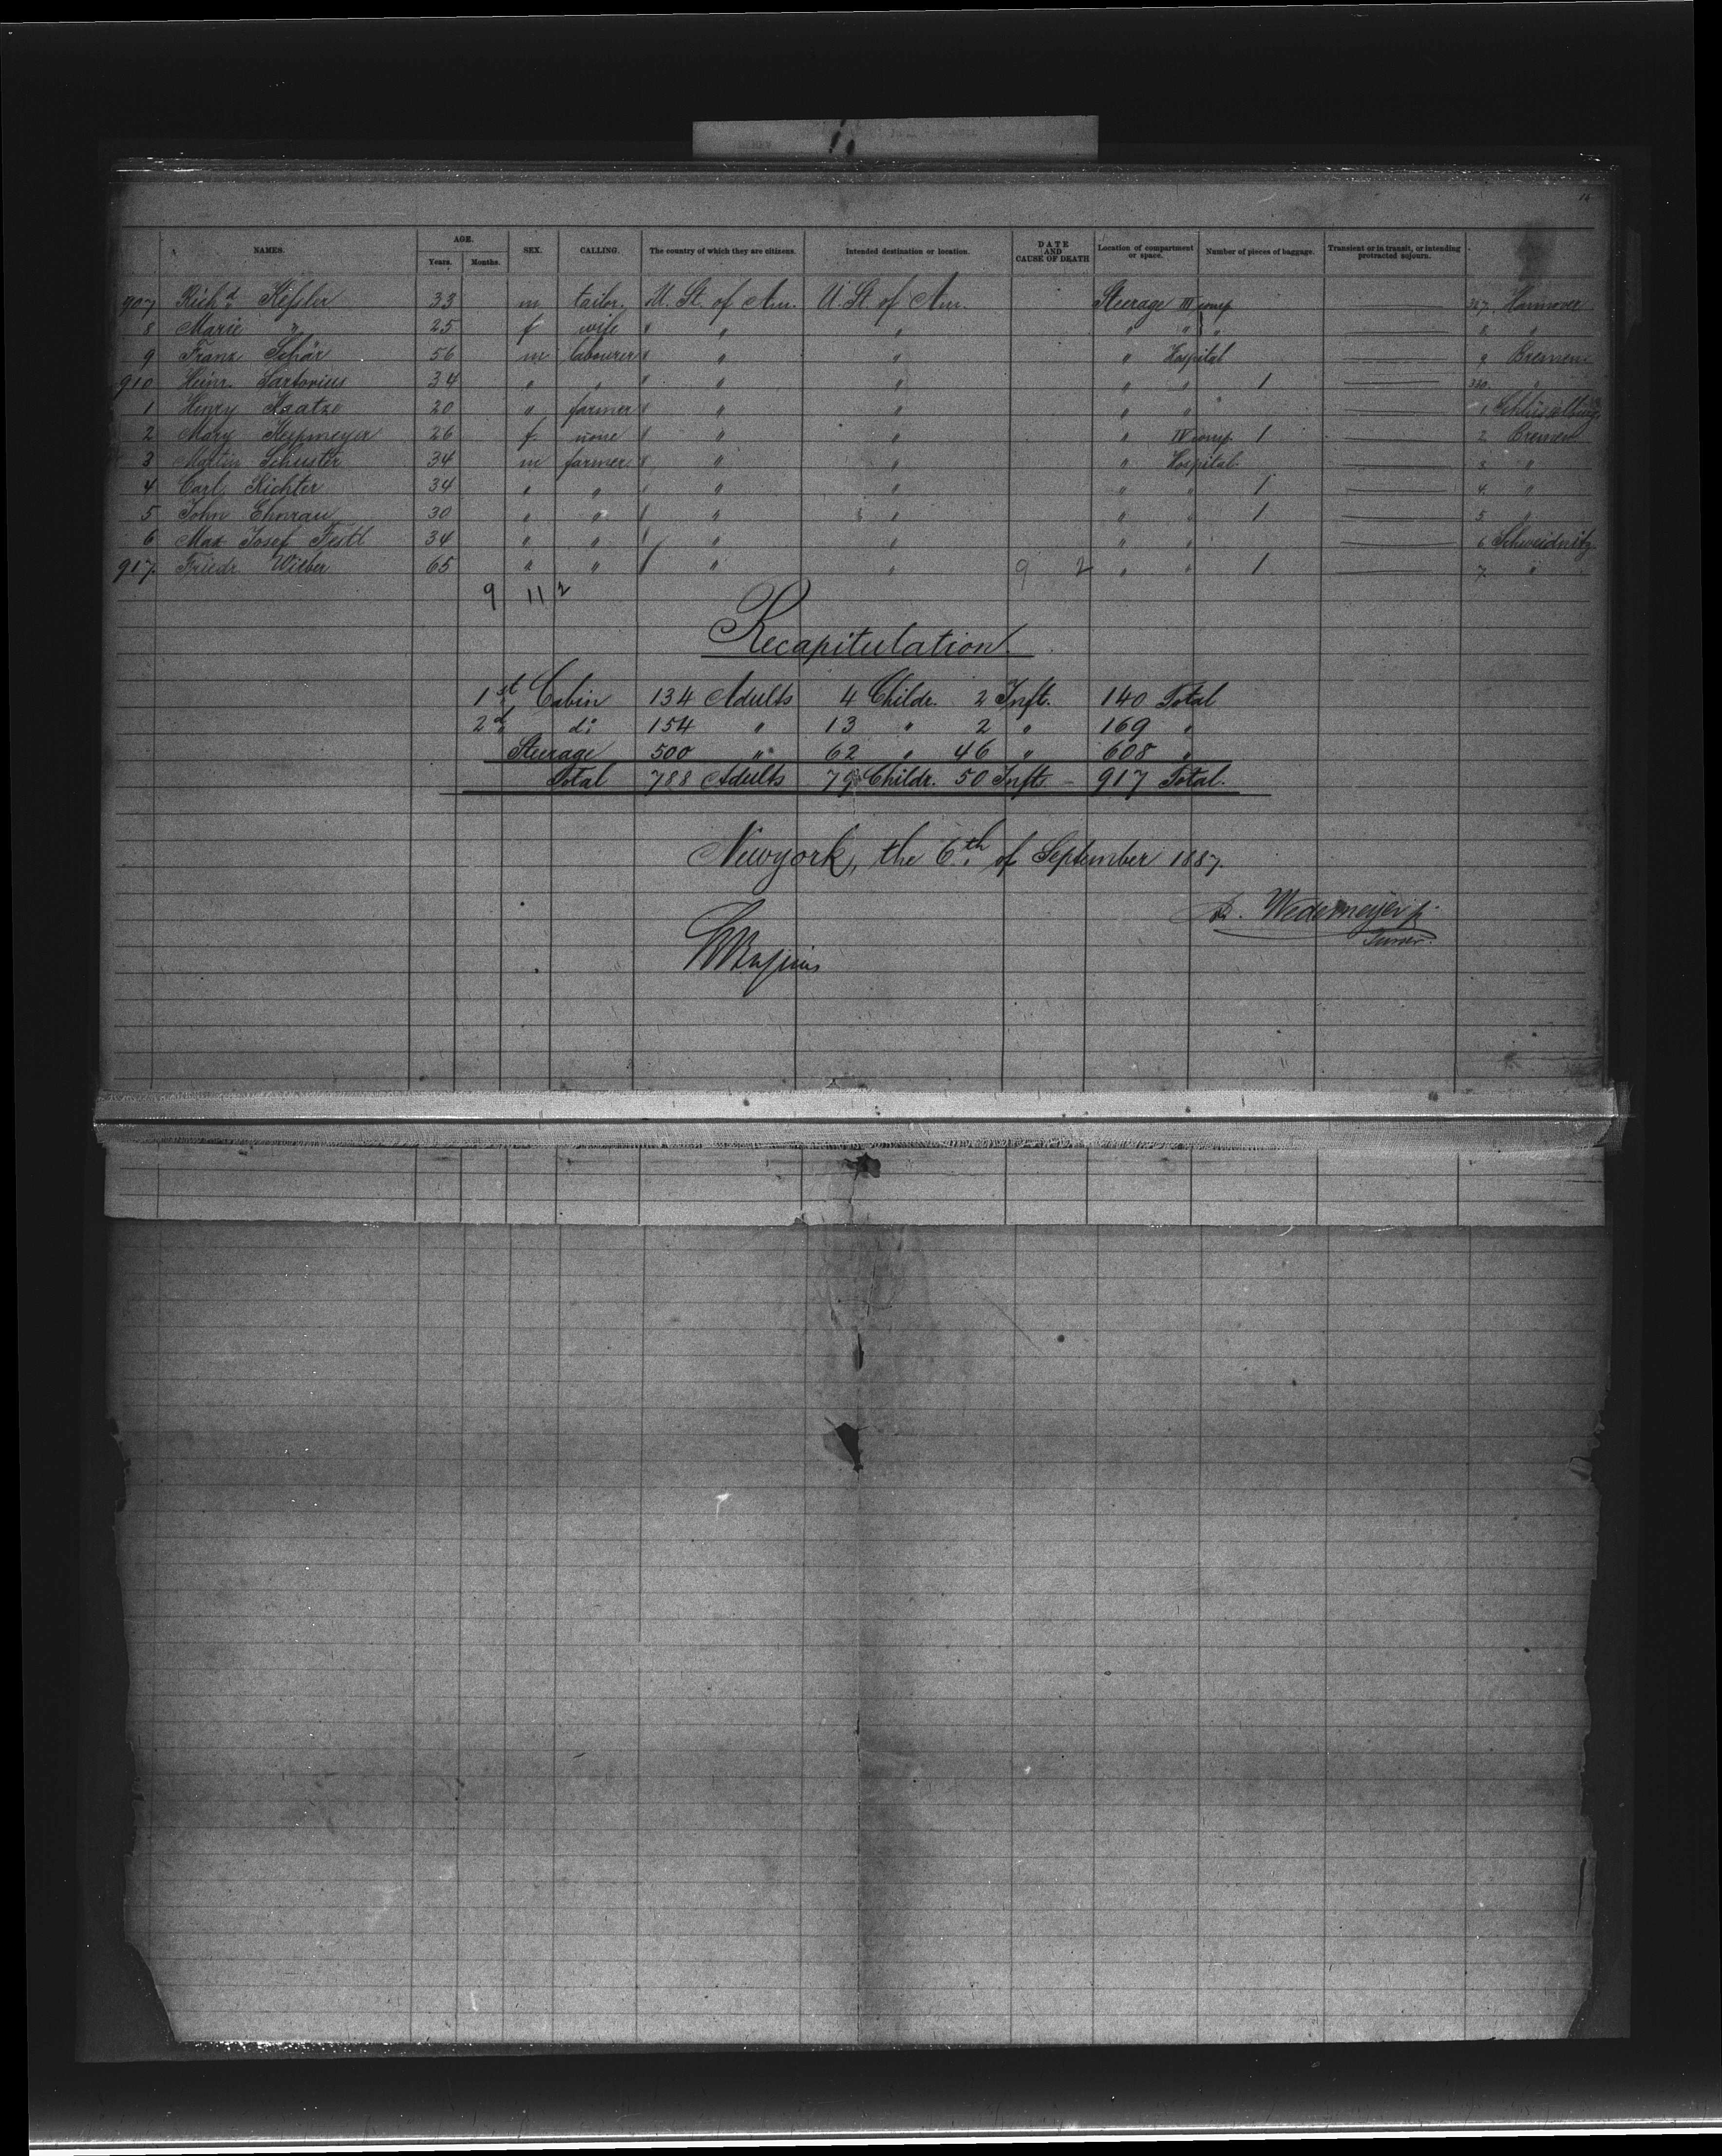 NAMES. AGE. SEX. CALLING. The country of which they are citizens. Intended destination or location. DATE AND CAUSE OF DEATH Location of compartment or space. Number of pieces of baggage. Transient or in transit, or intending protracted sojourn.
Years. Months.
907 Richd Keſsler 33 m tailor. U. St. of Am. U. St. of Am. Steerage III comp. 327. Hannover
8 Marie " 25 f wife " " " " " " 8. "
9 Franz Schär 56 m labourer " " " " Hospital 9. Bremen
910 Heinr. Sartorius 34 " " " " " " " 1 330. "
1 Henry Kaatze 20 " farmer " " " " " 1.
2 Mary 26 f none " " " " IV comp. 1 2. Bremen
3 Martin Schuster 34 m farmer " " " " Hospital 3. "
4 Carl Richter 34 " " " " " " " 1 4. "
5 John 30 " " " " " " " 1 5. "
6 Max Josef 34 " " " " " " " 6. Schweidnitz
917. Friedr. Wilber 65 " " " " " 9 2 " " 1 7. "
9 11 2
Recapitulation
1st Cabin 134 Adults 4 Childr. 2 Inft. 140 Total
2d " do 154 " 13 " 2 " 169 "
Steerage 500 " 62 " 46 " 608 "
Total 788 Adults 79 Childr. 50 Infts 917 Total.
Newyork, the 6th of September 1887.
Wedemeyer jr.